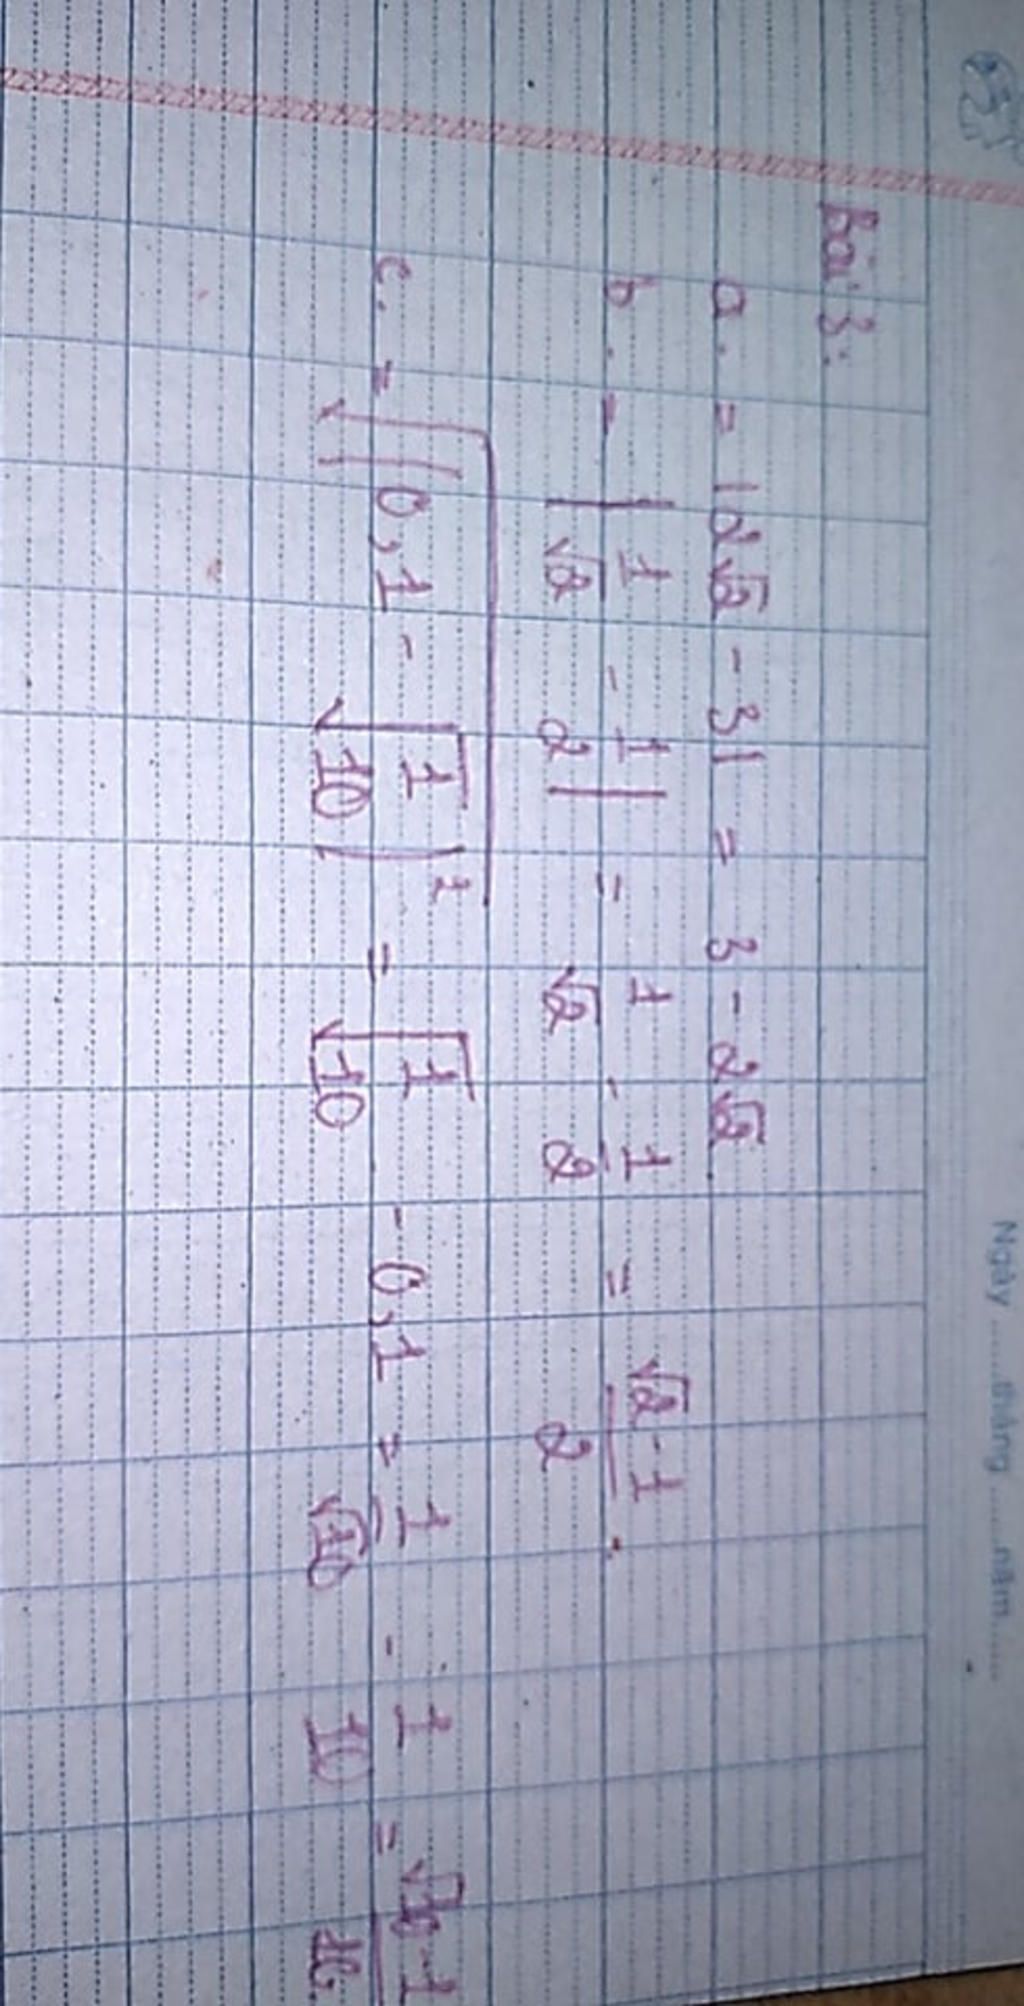 Ngày ...... tháng ...... năm ......
Bài 3:
a. = |2√2 - 3| = 3 - 2√2
b. = |1/√2 - 1/2| = 1/√2 - 1/2 = (√2 - 1)/2.
c. = √((0,1 - √(1/10))²) = √(1/10) - 0,1 = 1/√10 - 1/10 = (√10 - 1)/10.